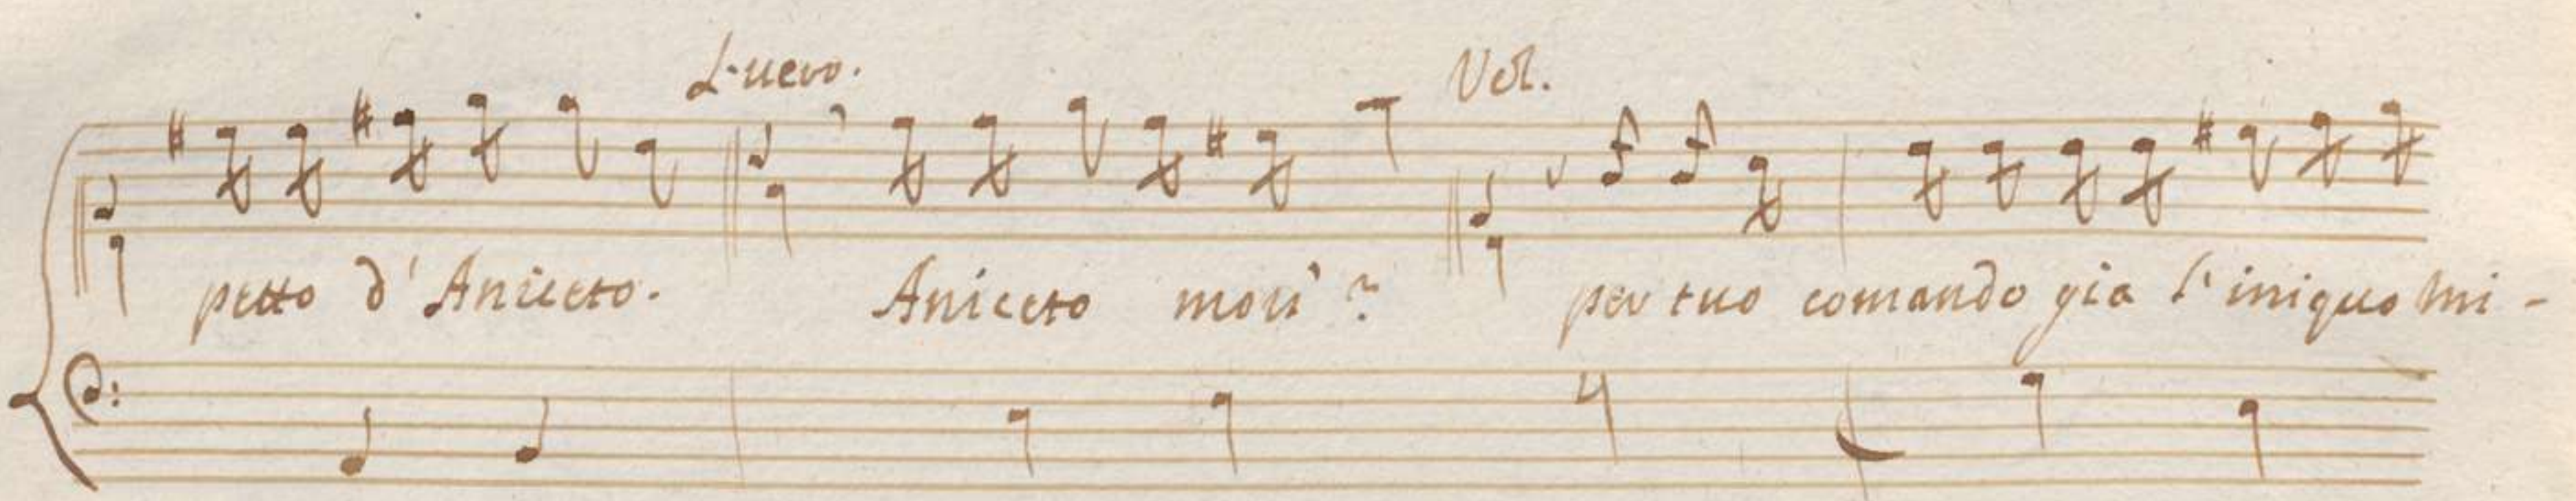 L. uero. Vol.
petto d'Aniceto. Aniceto morì? per tuo comando gia l'iniquo mi-